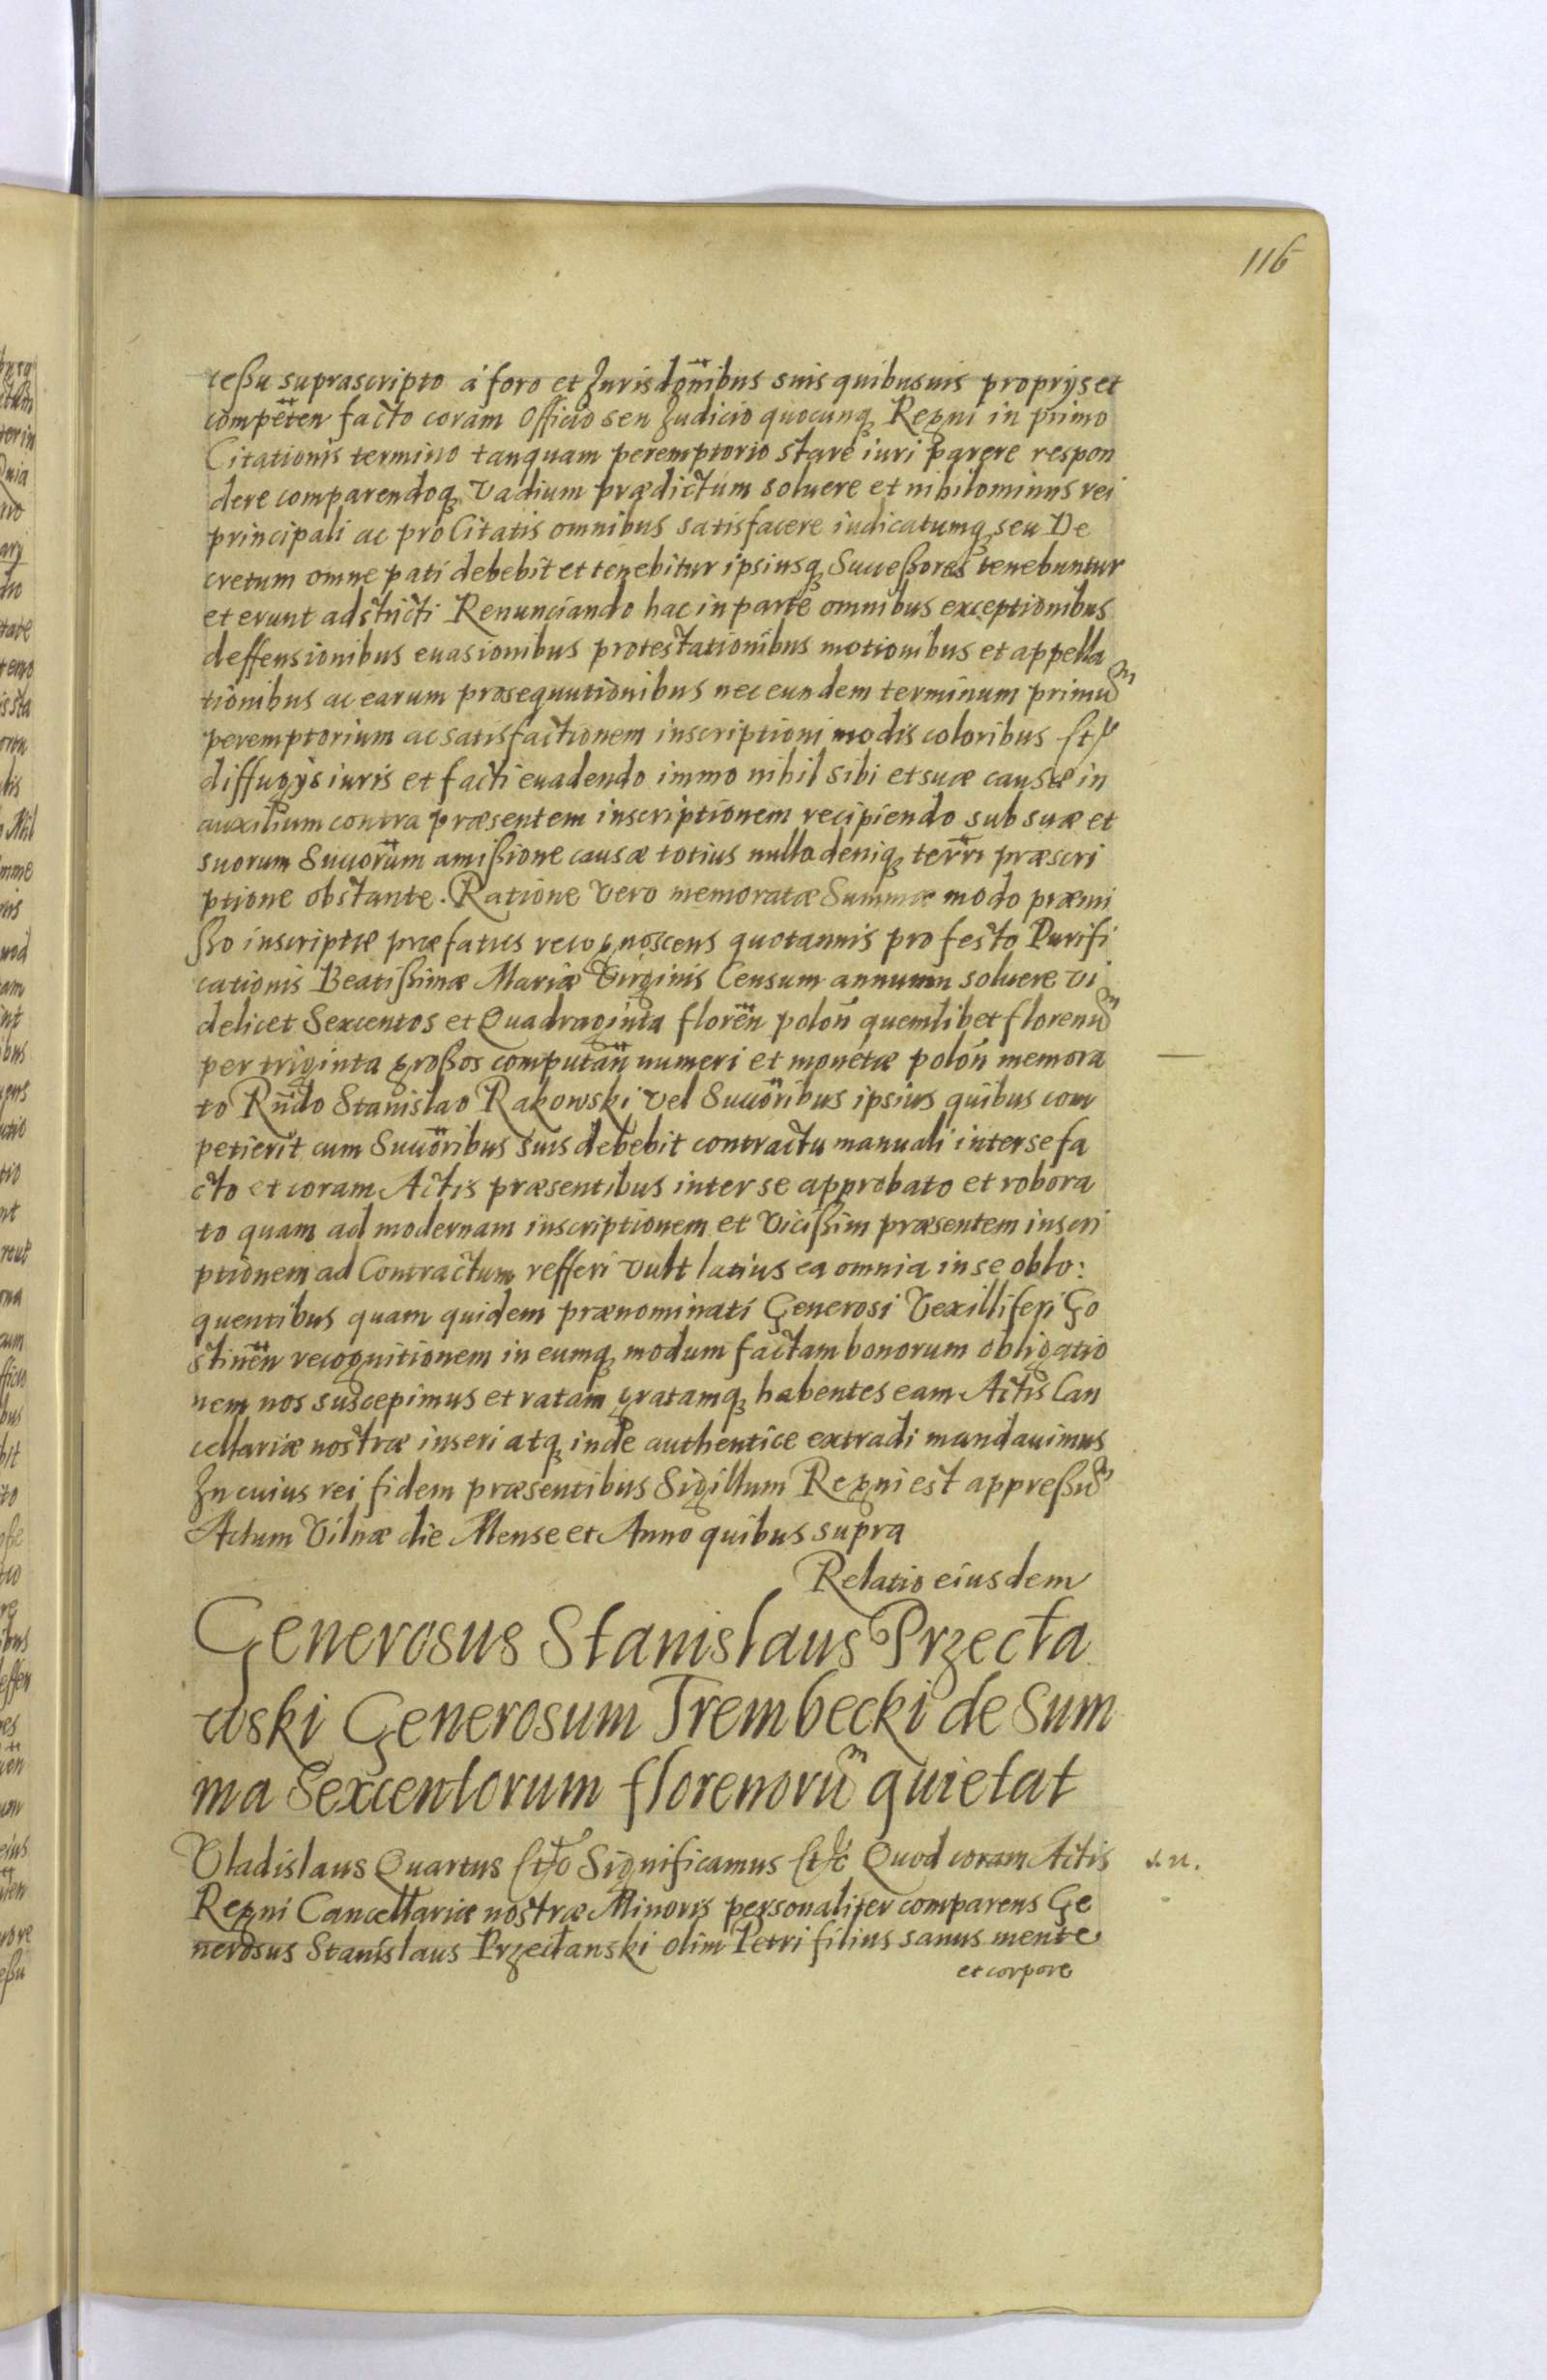 116
ceßu suprascripto à foro et Jurisdōnibus suis quibusuis proprijs et
compēten facto coram Officio seu Judicio quocunq Regni in primo
Citationis termino tanquam peremptorio stare iuri parere respon
dere comparendoq vadium prædictum soluere et nihilominus rei
principali ac pro Citatis omnibus satisfacere iudicatumq seu De
cretum omne pati debebit et tenebitur ipsiusq Succeßores tenebuntur
et erunt adstricti Renunciando hac in parte omnibus exceptionibus
deffensionibus euasionibus protestationibus motionibus et appella
tionibus ac earum prosequutionibus nec eundem terminum primum
peremptorium ac satisfactionem inscriptioni modis coloribus
diffugijs iuris et facti euadendo immo nihil sibi et suæ causæ in
auxilium contra præsentem inscriptionem recipiendo sub suæ et
suorum Succorum amißione causæ totius nulla deniq terrī præscri
ptione obstante. Ratione vero memoratæ Summæ modo præmi
ßo inscriptæ præfatus recognoscens quotannis pro festo Purifi
cationis Beatißimæ Mariæ Virginis Censum annuum soluere vi
delicet Sexcentos et Quadraginta florēn polōn quemlibet florenum
per triginta großos computān numeri et monetæ polōn memora
to Rndo Stanislao Rakowski vel Succōribus ipsius quibus com
petierit cum Succōribus suis debebit contractu manuali inter se fa
cto et coram Actis præsentibus inter se approbato et robora
to quam ad modernam inscriptionem et vicißim præsentem inscri
ptionem ad Contractum refferi vult latius ea omnia in se oblo:
quentibus quam quidem prænominati Generosi Vexilliferi Go
stinēn recognitionem in eumq modum factam bonorum obligatio
nem nos suscepimus et ratam gratamq habentes eam Actis Can
cellariæ nostræ inseri atq inde authentice extradi mandauimus
In cuius rei fidem præsentibus Sigillum Regni est appreßum
Actum Vilnæ die Mense et Anno quibus supra
Relatio eiusdem
Generosus Stanislaus Przecła
wski Generosum Trembecki de Sum
ma Sexcentorum florenorum quietat
Vladislaus Quartus Etc Significamus Etc Quod coram Actis
Regni Cancellariæ nostræ Minoris personaliter comparens Ge
nerosus Stanislaus Przecłanski olim Petri filius sanus mente
et corpore